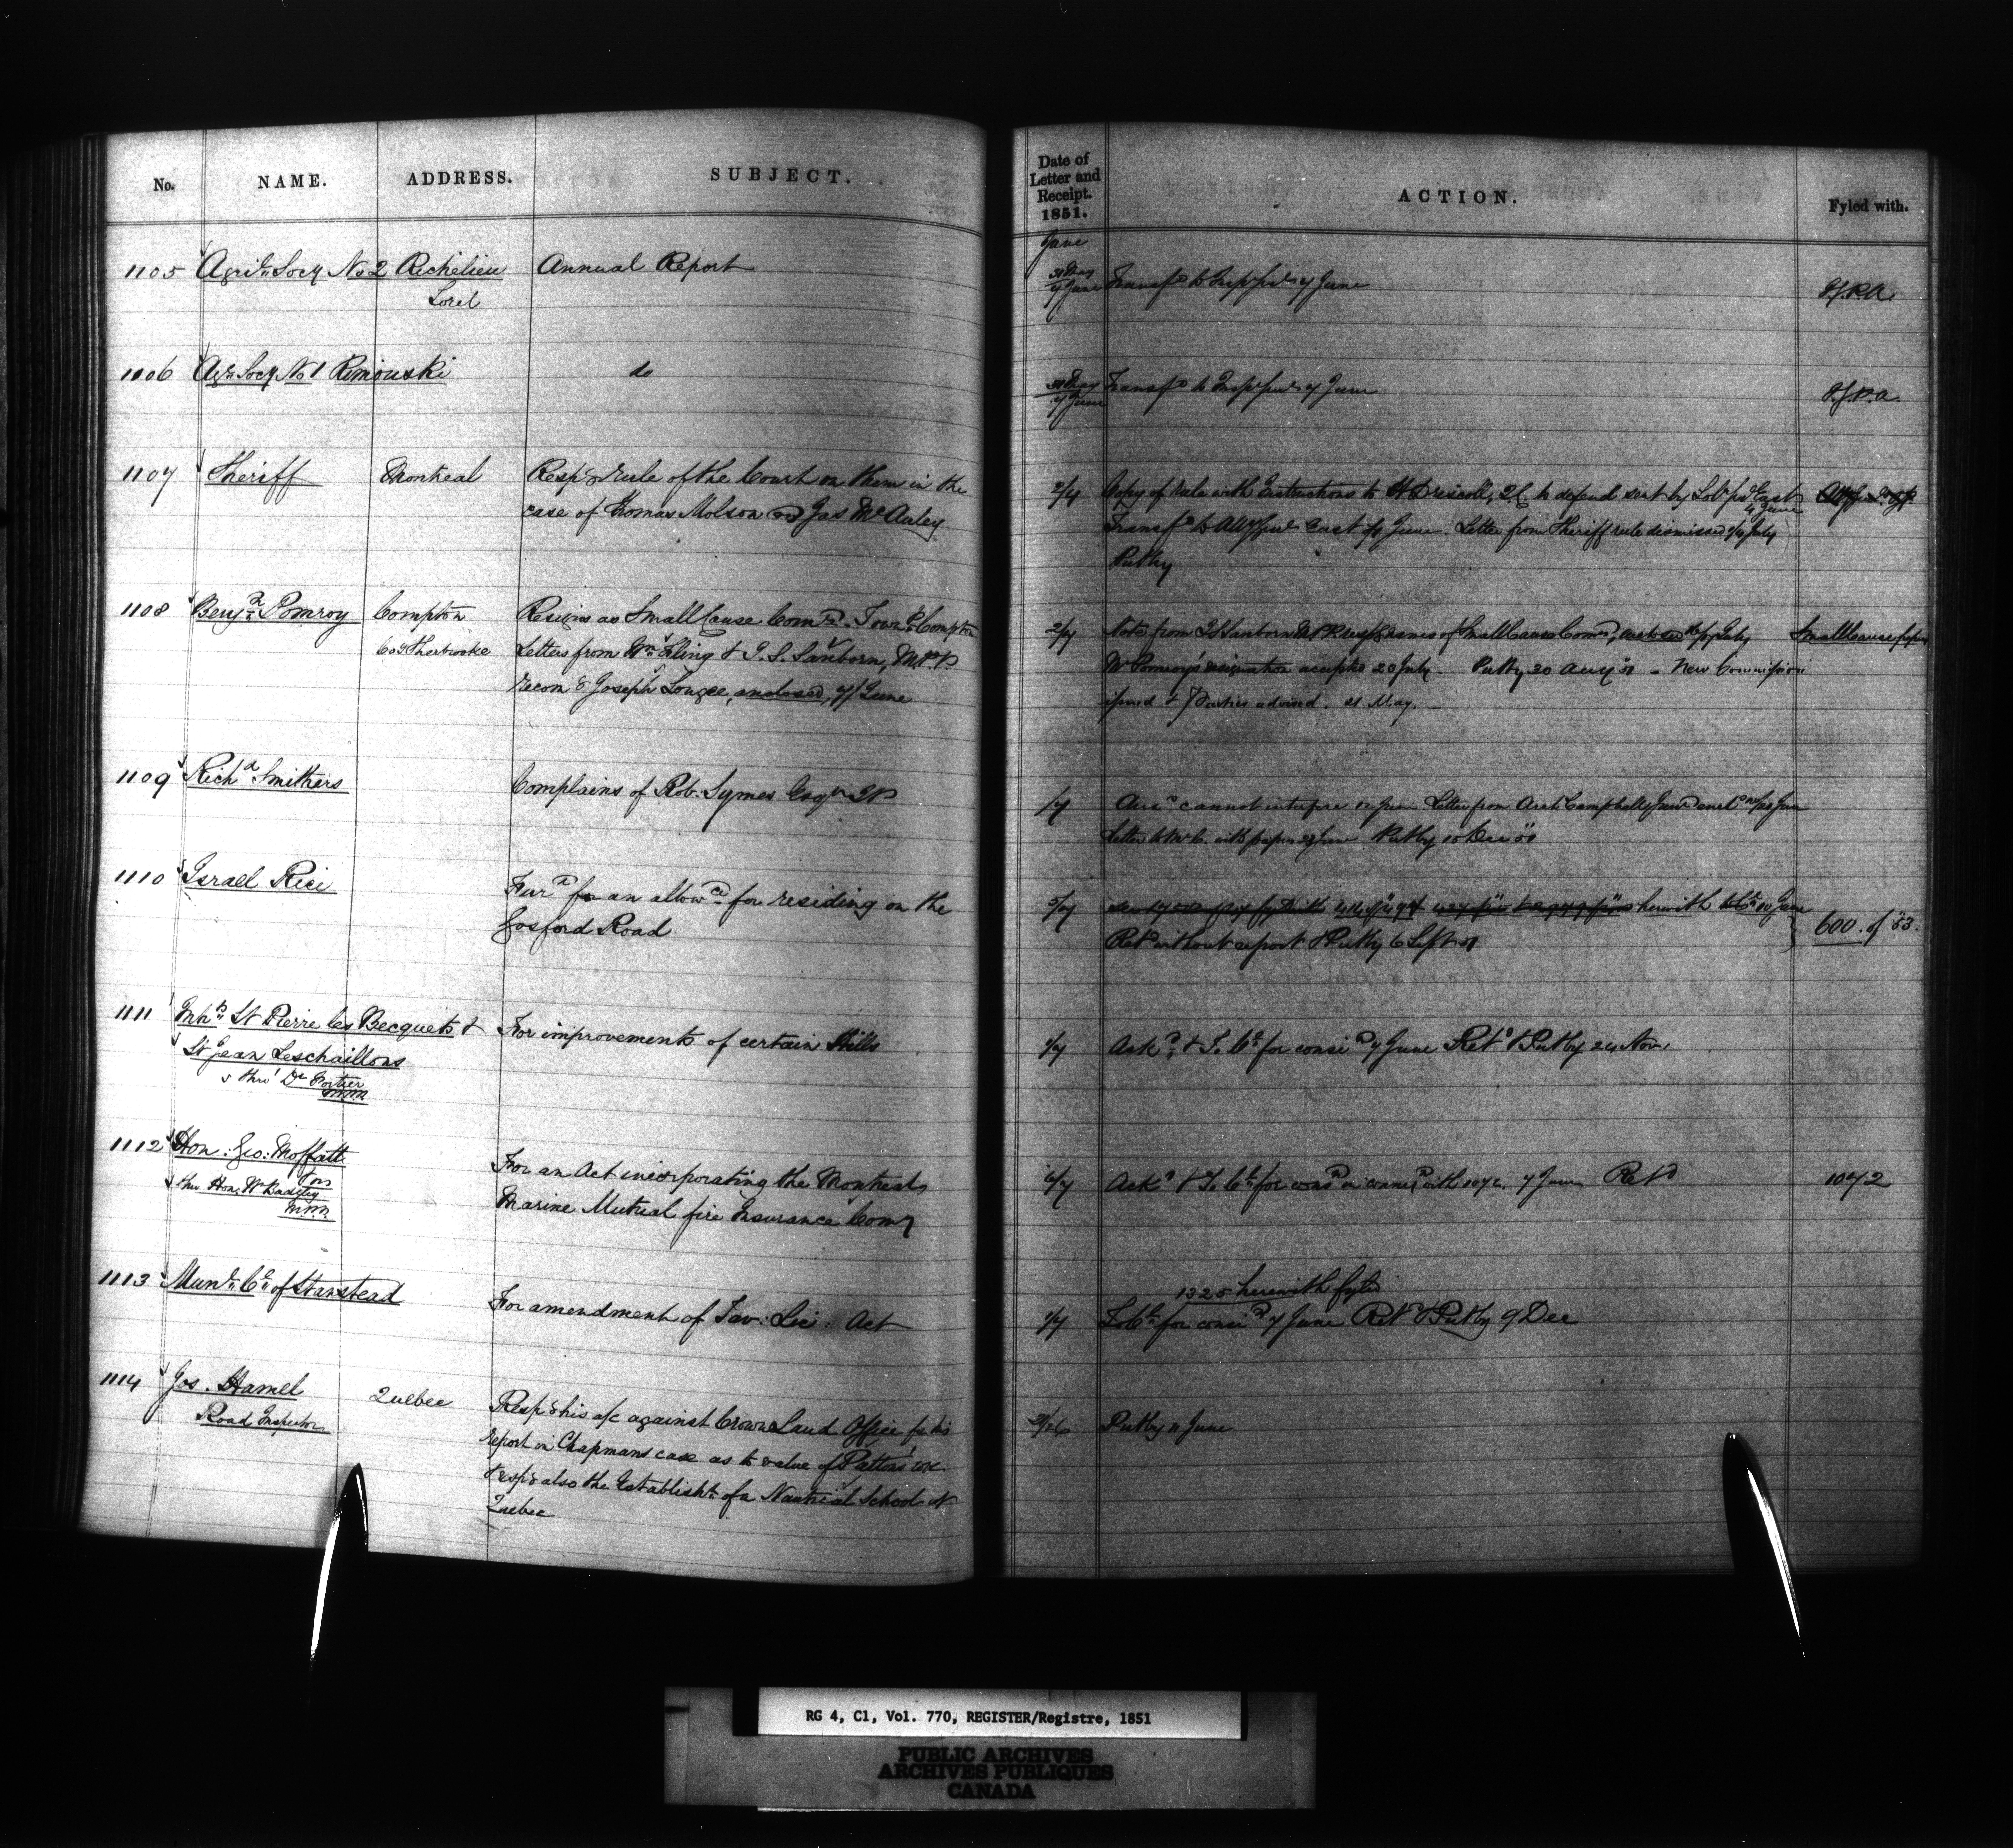 No. NAME. ADDRESS. SUBJECT.
1105 Agril Socy No 2 Richelieu Annual Report
Sorel
1106 Agr Socy No 1 Rimouski do
1107 Sheriff Montreal Resp'g rule of the Court on them in the
case of Thomas Molson Jas McAuley
1108 Benjn Pomroy Compton Resigns as Small Cause Comr. Town Compton
Co Sherbrooke Letters from Wm & J. S. Sanborn, MPP
recom'g Joseph enclosed, 7/ June
1109 Richd Smithers Complains of Rob. Symes Esqr JP
1110 Israel Rice for an allowce for residing on the
Gosford Road
1111 Inhts St Pierre les Becquets & For improvements of certain Hills
St Jean Deschaillons
thro' Dr Fortier
MPP
1112 Hon. Geo: Moffatt For an Act incorporating the Montreal
thro Hon. W Badgley Marine Mutual fire Insurance Comy
MPP
1113 Munl Cl of Stanstead For amendment of Tav: Lic: Act
1114 Jos. Hamel Quebec Resp'g his a/c against Crown Land Office for his
Road Inspector report in Chapmans case as to value of
& resp'g also the Establisht of a Nautical School at
Quebec
Date of
Letter and
Receipt.
1851. ACTION. Fyled with.
June
30 May
7 June Transfd to Insp Genl 7 June
30 May
7 June Transfd to Insp Genl 7 June
2/7 Copy of rule with Instructions to H Driscoll, Q.C. to defend sent by Sol Gen East
4 June
Transfd to Atty Genl East June. Letter from Sheriff rule dismissed July
Put by
2/7 Note from J S Sanborn MPP resp'g names of Small Cause Comrs, July Small Cause papers
Mr Pomroy's resignation accepted 20 July. Put by 20 Aug 51 - New Commission
issued & Parties advised. 21 May.
/7 cannot interfere 12 June Letter from Archd Campbell
Letter to Mr C. with papers June Put by 10 Dec 51
5/7 herewith 10 June
Retd without report & Put by 6 Sept 51 600 of 53.
/7 Ackd & To Cl for consid 7 June Retd & Put by 24 Nov.
6/7 Ackd & To Cl for consd in connexn with 1072. 7 June Retd 1072
1325 herewith fyled
/7 To Cl for consid 7 June Retd & Put by 9 Dec
Put by 11 June
RG 4, C1, Vol. 770, REGISTER/Registre, 1851
PUBLIC ARCHIVES
ARCHIVES PUBLIQUES
CANADA